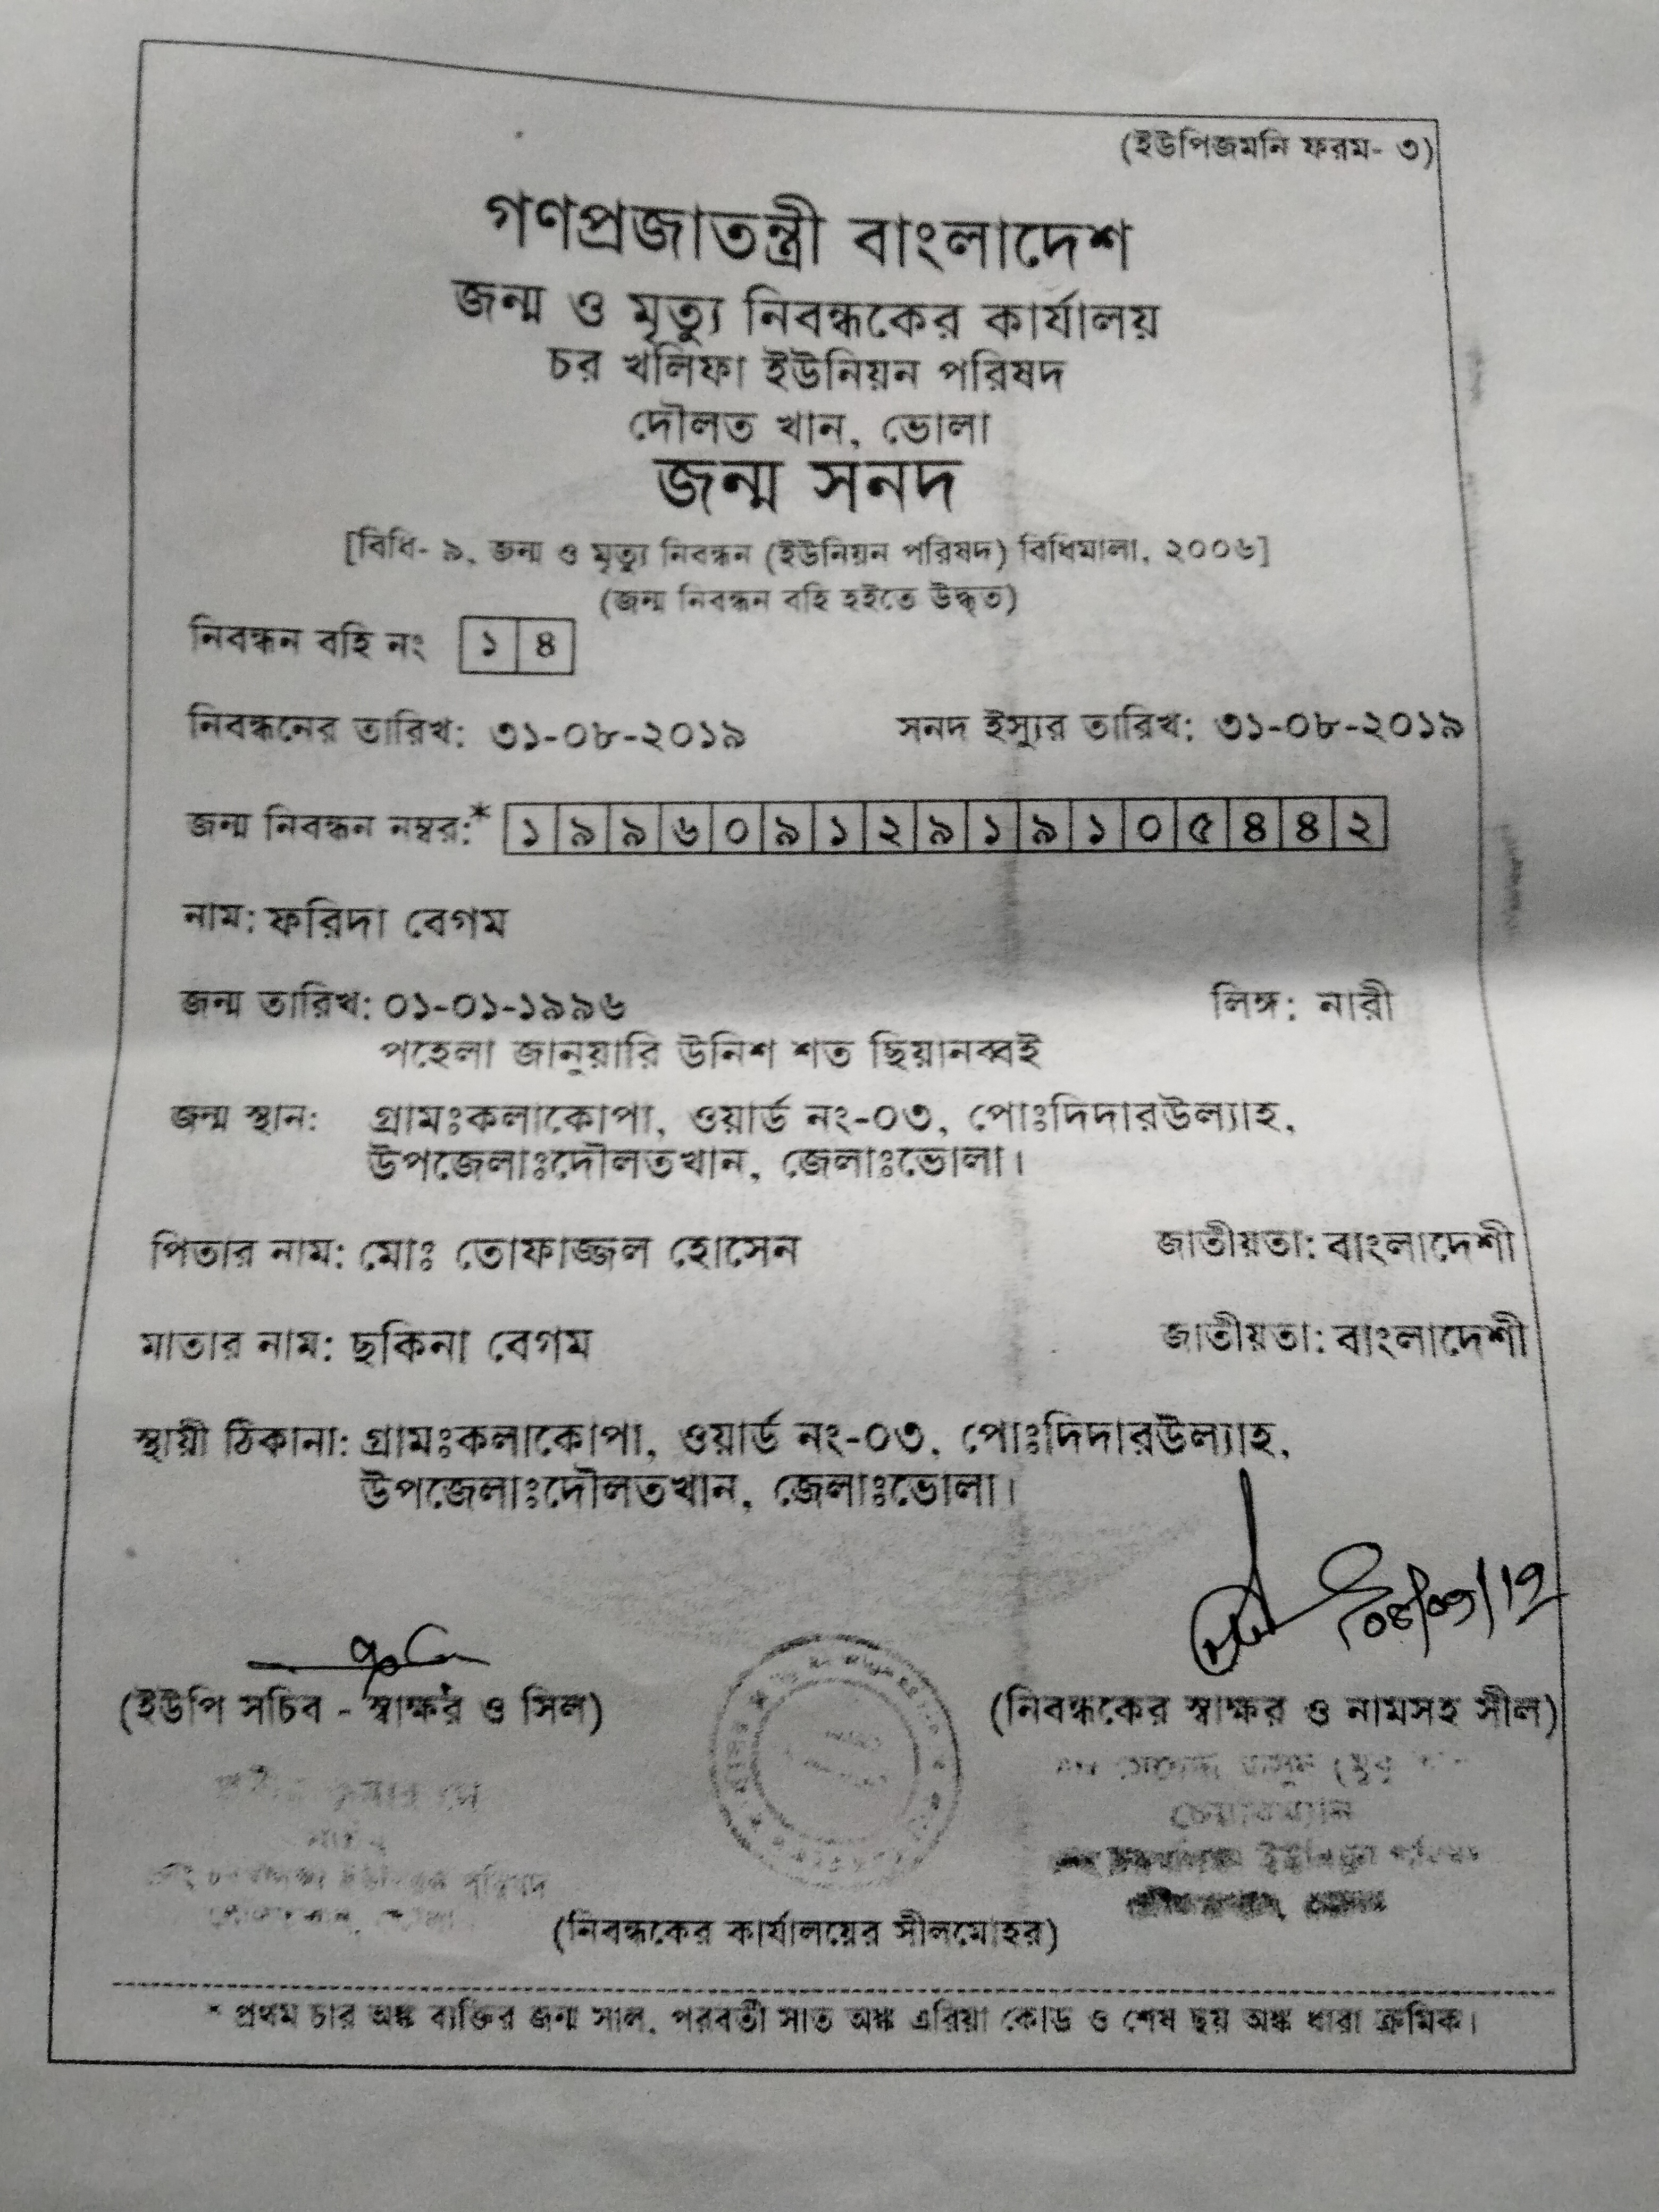 (ইউপিজমনি ফরম- ৩)
গণপ্রজাতন্ত্রী বাংলাদেশ
জন্ম ও মৃত্যু নিবন্ধকের কার্যালয়
চর খলিফা ইউনিয়ন পরিষদ
দৌলত খান, ভোলা
জন্ম সনদ
[বিধি- ৯, জন্ম ও মৃত্যু নিবন্ধন (ইউনিয়ন পরিষদ) বিধিমালা, ২০০৬]
(জন্ম নিবন্ধন বহি হইতে উদ্ধৃত)
নিবন্ধন বহি নং ১ ৪
নিবন্ধনের তারিখ: ৩১-০৮-২০১৯ সনদ ইস্যুর তারিখ: ৩১-০৮-২০১৯
জন্ম নিবন্ধন নম্বর:* ১ ৯ ৯ ৬ ০ ৯ ১ ২ ৯ ১ ৯ ১ ০ ৫ ৪ ৪ ২
নাম: ফরিদা বেগম
জন্ম তারিখ: ০১-০১-১৯৯৬ লিঙ্গ: নারী
পহেলা জানুয়ারি উনিশ শত ছিয়ানব্বই
জন্ম স্থান: গ্রামঃকলাকোপা, ওয়ার্ড নং-০৩, পোঃদিদারউল্যাহ,
উপজেলাঃদৌলতখান, জেলাঃভোলা।
পিতার নাম: মোঃ তোফাজ্জল হোসেন জাতীয়তা: বাংলাদেশী
মাতার নাম: ছকিনা বেগম জাতীয়তা: বাংলাদেশী
স্থায়ী ঠিকানা: গ্রামঃকলাকোপা, ওয়ার্ড নং-০৩, পোঃদিদারউল্যাহ,
উপজেলাঃদৌলতখান, জেলাঃভোলা।
(ইউপি সচিব - স্বাক্ষর ও সিল) (নিবন্ধকের স্বাক্ষর ও নামসহ সীল)
চেয়ারম্যান
(নিবন্ধকের কার্যালয়ের সীলমোহর)
* প্রথম চার অঙ্ক ব্যক্তির জন্ম সাল, পরবর্তী সাত অঙ্ক এরিয়া কোড ও শেষ ছয় অঙ্ক ধারা ক্রমিক।